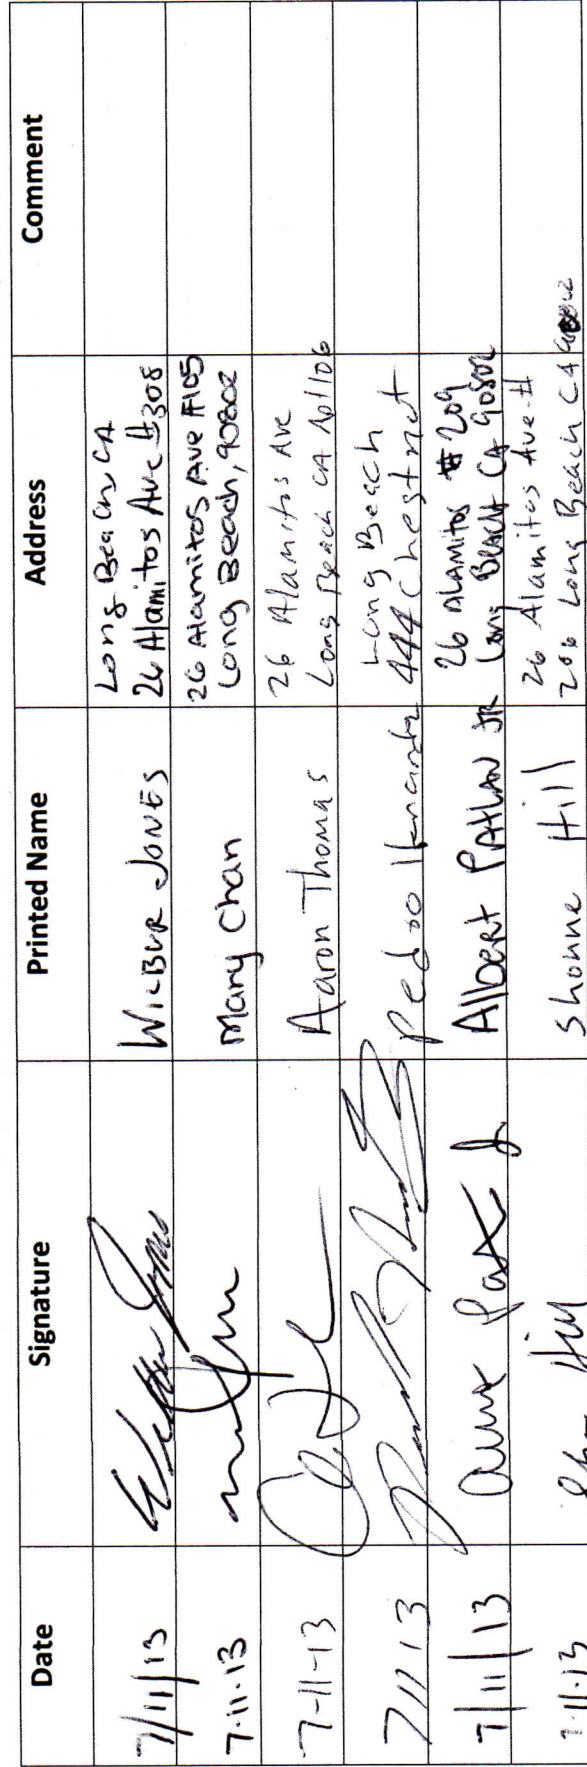 Date Signature Printed Name Address Comment
7/11/13 WILBUR JONES Long Beach CA
26 Alamitos Ave #308
7-11-13 Mary Chan 26 Alamitos Ave #105
Long Beach, 90802
7-11-13 Aaron Thomas 26 Alamitos Ave
Long Beach CA
7/11/13 Pedro Hernandez Long Beach
444 Chestnut
7/11/13 Albert PATLAN JR 26 ALAMITOS # 209
Long BEACH CA 90802
7-11-13 Hill Shonne Hill 26 Alamitos Ave #
206 Long Beach CA